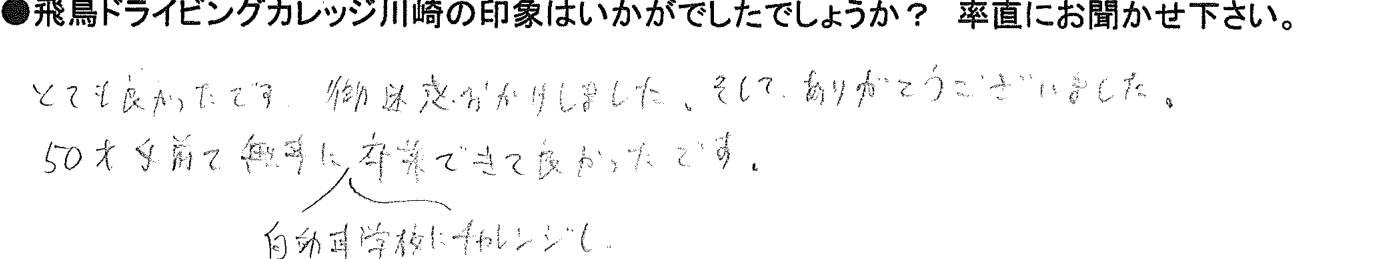 ●飛鳥ドライビングカレッジ川崎の印象はいかがでしたでしょうか？ 率直にお聞かせ下さい。
とても良かったです。御迷惑おかけしました。そして、ありがとうございました。
50才手前で無事に卒業できて良かったです。
自動車学校にチャレンジし、